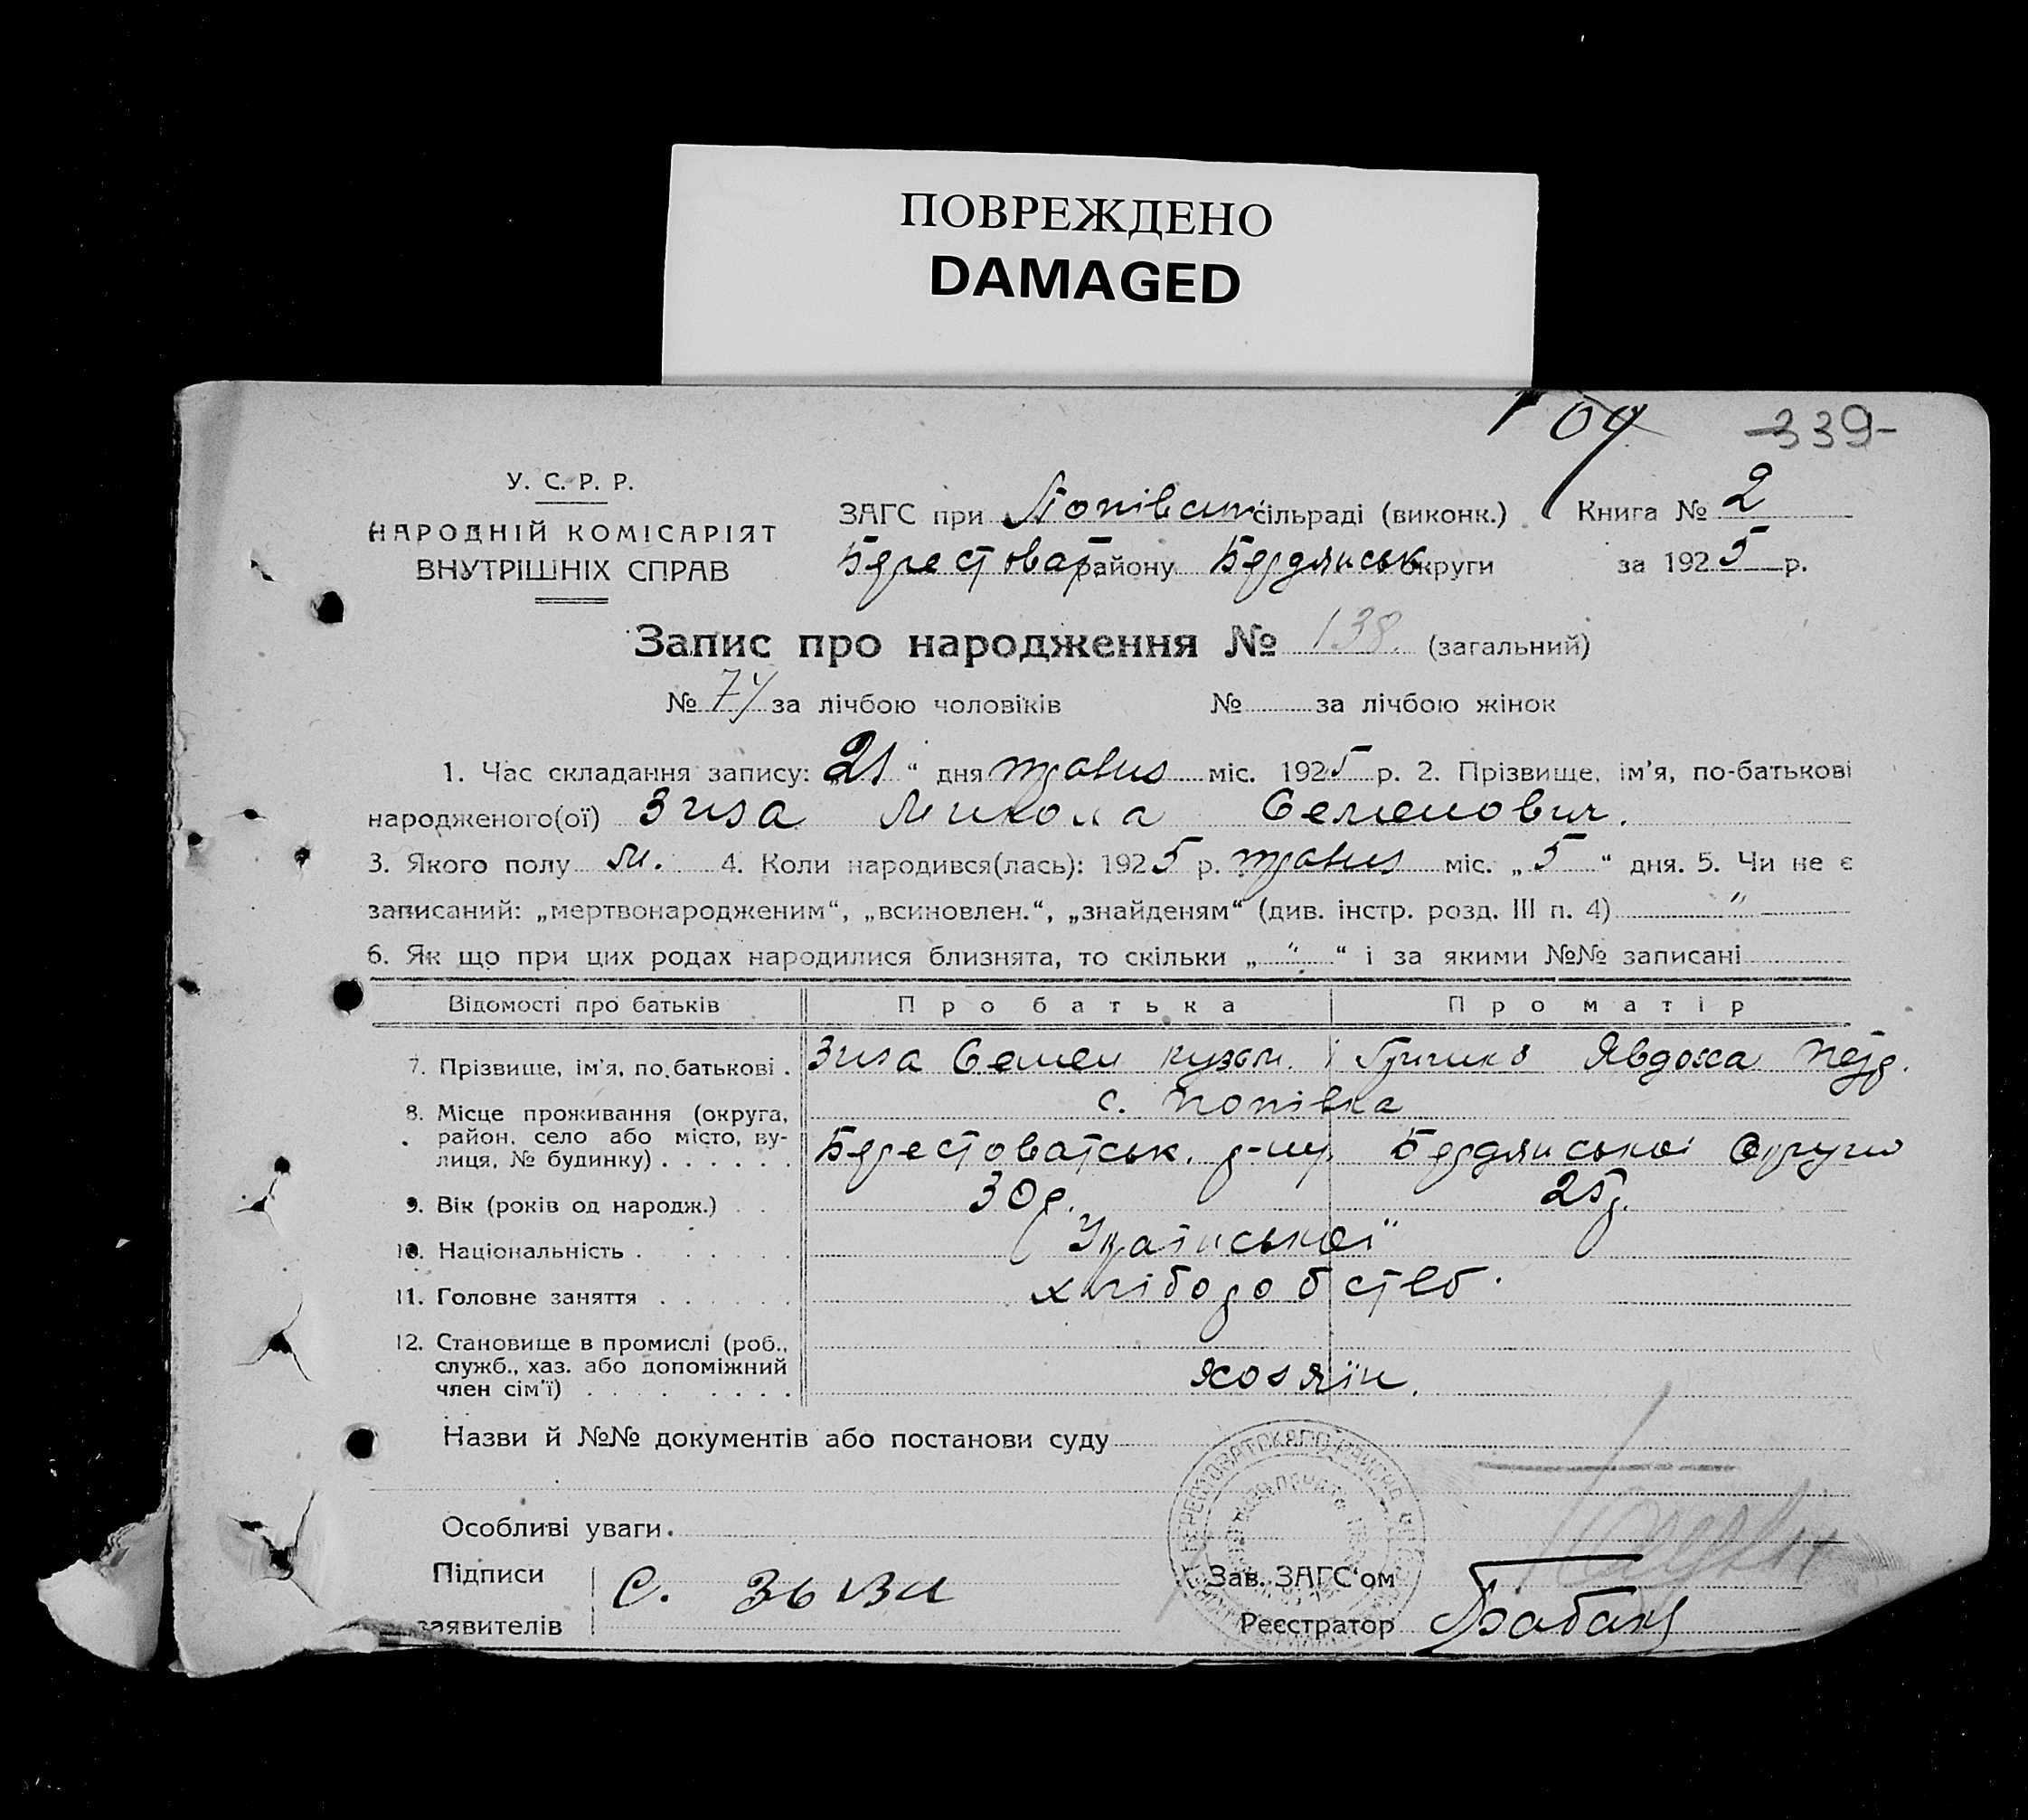 ПОВРЕЖДЕНО
DAMAGED
-339-
У. С. Р. Р.
НАРОДНІЙ КОМІСАРІЯТ
ВНУТРІШНІХ СПРАВ
ЗАГС при Попівськ сільраді (виконк.) Книга № 2
Берестоват району Бердянськ округи за 1925 р.
Запис про народження № 138. (загальний)
№ 74 за лічбою чоловіків № за лічбою жінок
1. Час складання запису: „21“ дня травня міс. 1925 р. 2. Прізвище, ім’я, по-батькові
народженого(ої) Зиза Микола Семенович.
3. Якого полу м. 4. Коли народився(лась): 1925 р. травня міс. „5“ дня. 5. Чи не є
записаний: „мертвонародженим“, „всиновлен.“, „знайденям“ (див. інстр. розд. III п. 4) "
6. Як що при цих родах народилися близнята, то скільки „ " “ і за якими №№ записані
Відомості про батьків Про батька Про матір
7. Прізвище, ім’я, по батькові . Зиза Семен Кузьм. Явдоха
8. Місце проживання (округа, с. Попівка
район, село або місто, ву-
лиця, № будинку) . . . . . . Берестоватськ. р-ну Бердянської Округи
9. Вік (років од народж.) . . 30р. 25р.
10. Національність . . . . . . Української
11. Головне заняття . . . . . . хліборобств.
12. Становище в промислі (роб.,
служб., хаз. або допоміжний
член сім’ї) . . . . . . . . хозяїн.
Назви й №№ документів або постанови суду
Особливі уваги.
Підписи С. Зыза Зав. ЗАГС‘ом
заявителів Реєстратор